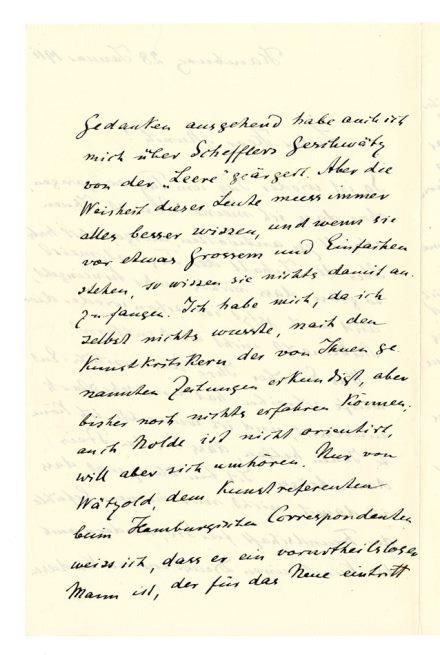 Gedanken ausgehend habe auch ich
mich über Schefflers Geschwätz
von der „Leere" geärgert. Aber die
Weisheit dieser Leute muss immer
alles besser wissen, und wenn sie
vor etwas Grossem und Einfachen
stehen, so wissen sie nichts damit an-
zu fangen. Ich habe mich, da ich
selbst nichts wusste, nach den
Kunstkritikern der von Ihnen ge-
nannten Zeitungen erkundigt, aber
bisher noch nichts erfahren können;
auch Nolde ist nicht orientirt,
will aber sich umhören. Nur von
Wätzold, dem Kunstreferenten
beim Hamburgischen Correspondenten
weiss ich, dass er ein vorurtheilsloser
Mann ist, der für das Neue eintritt